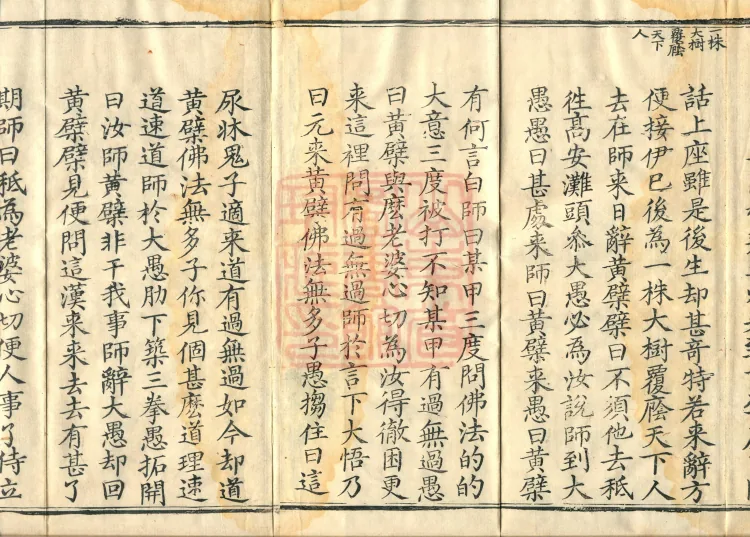 一株
大樹
覆廕
天下
人
話上座雖是後生却甚奇特若来辭方
便接伊已後為一株大樹覆廕天下人
去在師来日辭黃檗檗曰不須他去秪
徃髙安灘頭叅大愚必為汝說師到大
愚愚曰甚處来師曰黃檗来愚曰黃檗
有何言白師曰某甲三度問佛法的的
大意三度被打不知某甲有過無過愚
曰黃檗與麽老婆心切為汝得徹困更
来這裡問有過無過師於言下大悟乃
曰元来黃檗佛法無多子愚搊住曰這
尿牀鬼子適来道有過無過如今却道
黃檗佛法無多子你見個甚麽道理速
道速道師於大愚肋下築三拳愚拓開
曰汝師黃檗非干我事師辭大愚却回
黃檗檗見便問這漢来来去去有甚了
期師曰秪為老婆心切便人事了侍立